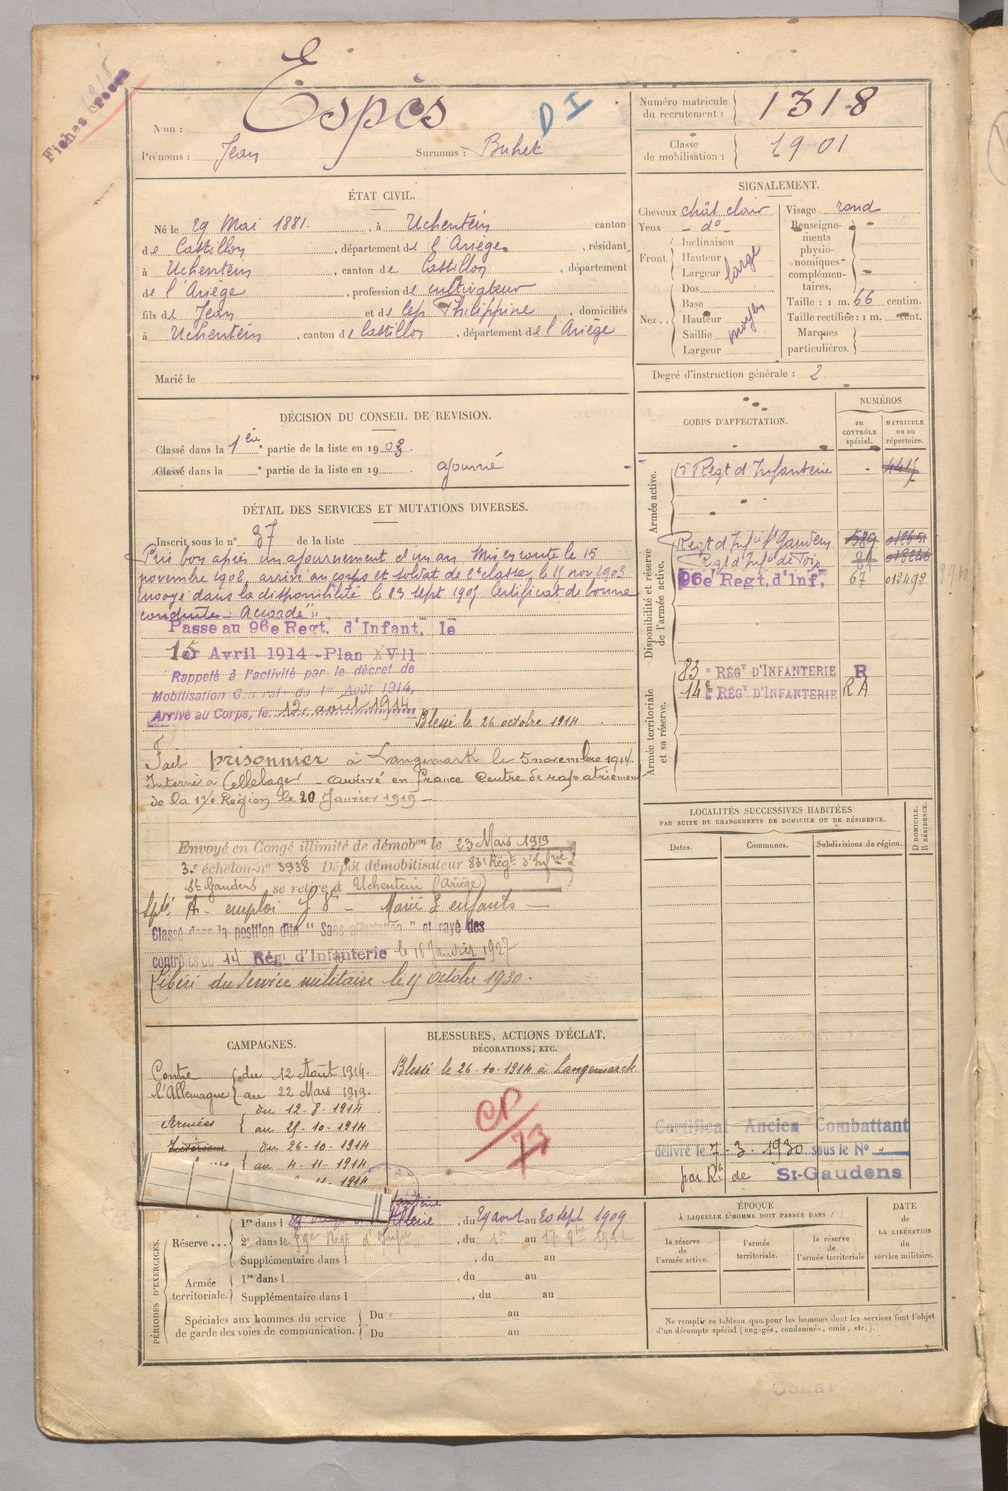 Fiches
Nom : Espès
D I
Prénoms : Jean Surnoms : Buhet
Numéro matricule
du recrutement : 1318
Classe
de mobilisation : 1901
ÉTAT CIVIL.
Né le 29 Mai 1881. , à Uchentein canton
de Castillon , département de l'Ariège , résidant
à Uchentein , canton de Castillon , département
de l'Ariège , profession de cultivateur
fils de Jean et de Philippine , domiciliés
à Uchentein , canton de Castillon , département de l'Ariège
Marié le
SIGNALEMENT.
Cheveux chât clair
Yeux - d° -
Front. Inclinaison
Hauteur
Largeur large
Nez . . Dos
Base
Hauteur moyen
Saillie
Largeur
Visage rond
Renseigne-
ments
physio-
nomiques
complémen-
taires.
Taille : 1 m. 66 centim.
Taille rectifiée : 1 m. cent.
Marques
particulières.
Degré d'instruction générale : 2
DÉCISION DU CONSEIL DE REVISION.
Classé dans la 1ère partie de la liste en 1903.
Classé dans la e partie de la liste en 19 ajourné
DÉTAIL DES SERVICES ET MUTATIONS DIVERSES.
Inscrit sous le n° 37 de la liste
Pris bon après un ajournement d'un an. Mis en route le 15
novembre 1903, arrivé au corps et soldat de 2e classe le 15 nov 1903
Envoyé dans la disponibilité le 23 sept 1905 Certificat de bonne
conduite "Accordé"
Passé au 96e Regt. d'Infant. le
1er Avril 1914 - Plan XVII
Rappelé à l'activité par le décret de
Mobilisation Générale du 1er Août 1914,
Arrivé au Corps, le 12 août 1914 Blessé le 26 octobre 1914
Fait prisonnier à Langemark le 5 novembre 1914
Interné à Cellelager - arrivé en France Centre de rapatriement
de la 17e Région le 20 Janvier 1919 -
Envoyé en Congé illimité de démobon le 23 Mars 1919
3e échelon n° 3938 Dépôt démobilisateur 83e Régt d'Infrie à
St Gaudens se retire à Uchentein (Ariège)
A - emploi - Marié 3 enfants -
Classé dans la position dite "Sans affectation" et rayé des
contrôles du 14 Régt d'Infanterie le 15 Janvier 1927
Libéré du Service militaire le 15 octobre 1930.
CORPS D'AFFECTATION.
NUMÉROS
au
CONTRÔLE
spécial.
MATRICULE
ou au
répertoire.
Armée active.
Régt d'Infanterie
Disponibilité et réserve
de l'armée active.
Régt d'Infie St Gaudens 589
Régt d'Infie de Foix
96e Regt. d'Inf. 67 012492
Armée territoriale
et sa réserve.
83e RÉGT D'INFANTERIE R
14e RÉGT D'INFANTERIE RA
LOCALITÉS SUCCESSIVES HABITÉES
PAR SUITE DE CHANGEMENTS DE DOMICILE OU DE RÉSIDENCE.
Dates.
Communes.
Subdivisions de région.
D DOMICILE.
R RÉSIDENCE.
CAMPAGNES.
Contre du 12 Août 1914.
l'Allemagne au 22 Mars 1919.
Armées du 12-8-1914
au 25-10-1914
du 26-10-1914
au 4-11-1914
BLESSURES, ACTIONS D'ÉCLAT,
DÉCORATIONS, ETC.
Blessé le 26-10-1914 à Langemarck
Certificat Ancien Combattant
délivré le 7-3-1930 sous le N°
par Rt de St-Gaudens
PÉRIODES D'EXERCICES.
Réserve . . . 1re dans l , du 29 août au 20 sept 1909
2e dans le , du 1er au 17
Supplémentaire dans l , du au
Armée
territoriale. 1re dans l , du au
Supplémentaire dans l , du au
Spéciales aux hommes du service
de garde des voies de communication. Du au
Du au
ÉPOQUE
À LAQUELLE L'HOMME DOIT PASSER DANS :
la réserve
de
l'armée active.
l'armée
territoriale.
la réserve
de
l'armée territoriale
DATE
de
LA LIBÉRATION
du
service militaire.
Ne remplir ce tableau que pour les hommes dont les services font l'objet
d'un décompte spécial (engagés, condamnés, omis, etc.).